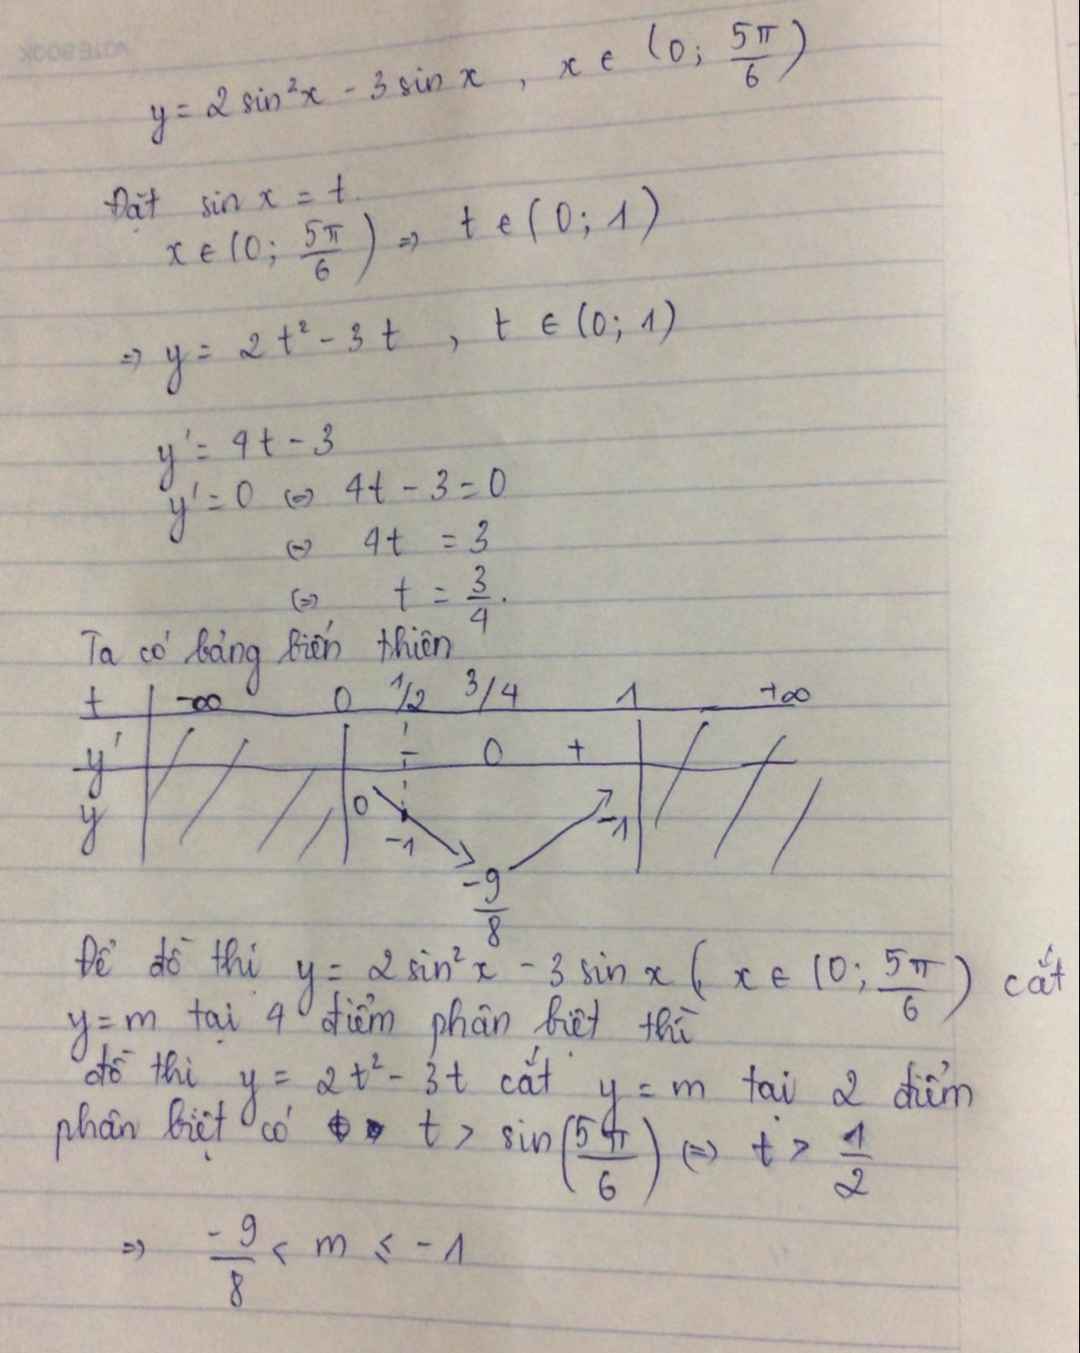 y = 2 sin²x - 3 sin x , x ∈ (0; 5π/6)
Đặt sin x = t.
x ∈ (0; 5π/6) ⇒ t ∈ (0; 1)
⇒ y = 2t² - 3t , t ∈ (0; 1)
y' = 4t - 3
y' = 0 ⇔ 4t - 3 = 0
⇔ 4t = 3
⇔ t = 3/4.
Ta có bảng biến thiên
t -∞ 0 1/2 3/4 1 +∞
y' - 0 +
y 0 -1 -9/8 -1
Để đồ thị y = 2 sin²x - 3 sin x ( x ∈ (0; 5π/6) cắt
y = m tại 4 điểm phân biệt thì
đồ thị y = 2t² - 3t cắt y = m tại 2 điểm
phân biệt có t > sin(5π/6) ⇔ t > 1/2
⇒ -9/8 < m ≤ -1